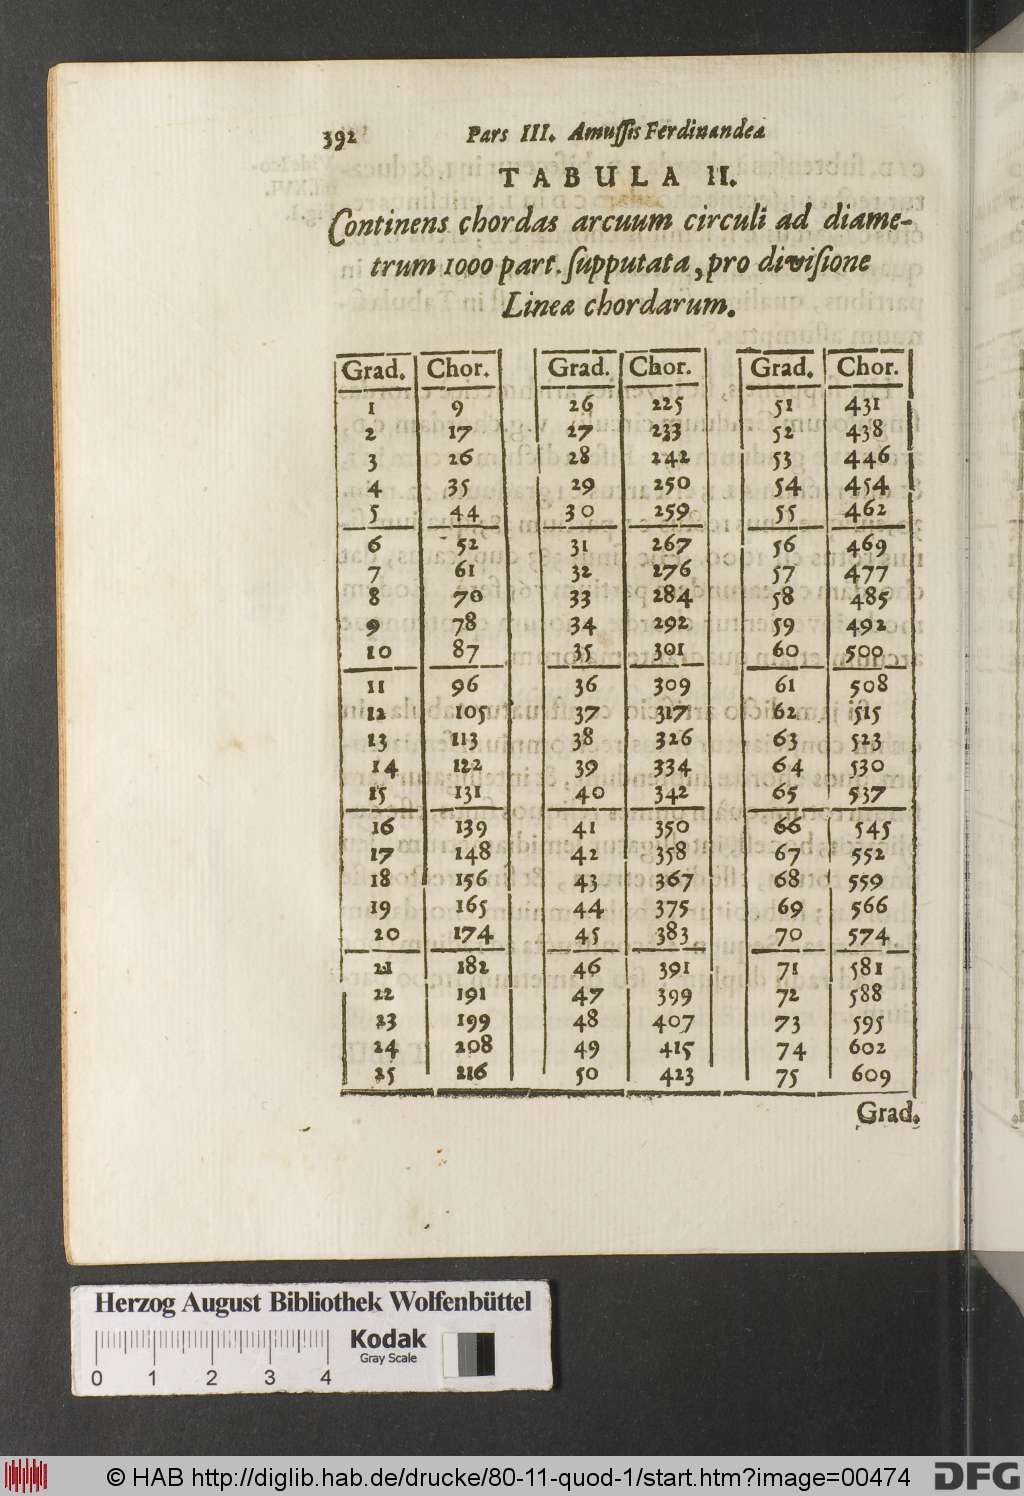 392 Pars III. Amuſſis Ferdinandea
TABULA II.
Continens chordas arcuum circuli ad diame-
trum 1000 part. ſupputata, pro diviſione
Lineæ chordarum.
Grad. Chor. Grad. Chor. Grad. Chor.
1 9 26 225 51 431
2 17 27 233 52 438
3 26 28 242 53 446
4 35 29 250 54 454
5 44 30 259 55 462
6 52 31 267 56 469
7 61 32 276 57 477
8 70 33 284 58 485
9 78 34 292 59 492
10 87 35 301 60 500
11 96 36 309 61 508
12 105 37 317 62 515
13 113 38 326 63 523
14 122 39 334 64 530
15 131 40 342 65 537
16 139 41 350 66 545
17 148 42 358 67 552
18 156 43 367 68 559
19 165 44 375 69 566
20 174 45 383 70 574
21 182 46 391 71 581
22 191 47 399 72 588
23 199 48 407 73 595
24 208 49 415 74 602
25 216 50 423 75 609
Grad.
Herzog August Bibliothek Wolfenbüttel
Kodak
Gray Scale
0 1 2 3 4
© HAB http://diglib.hab.de/drucke/80-11-quod-1/start.htm?image=00474
DFG